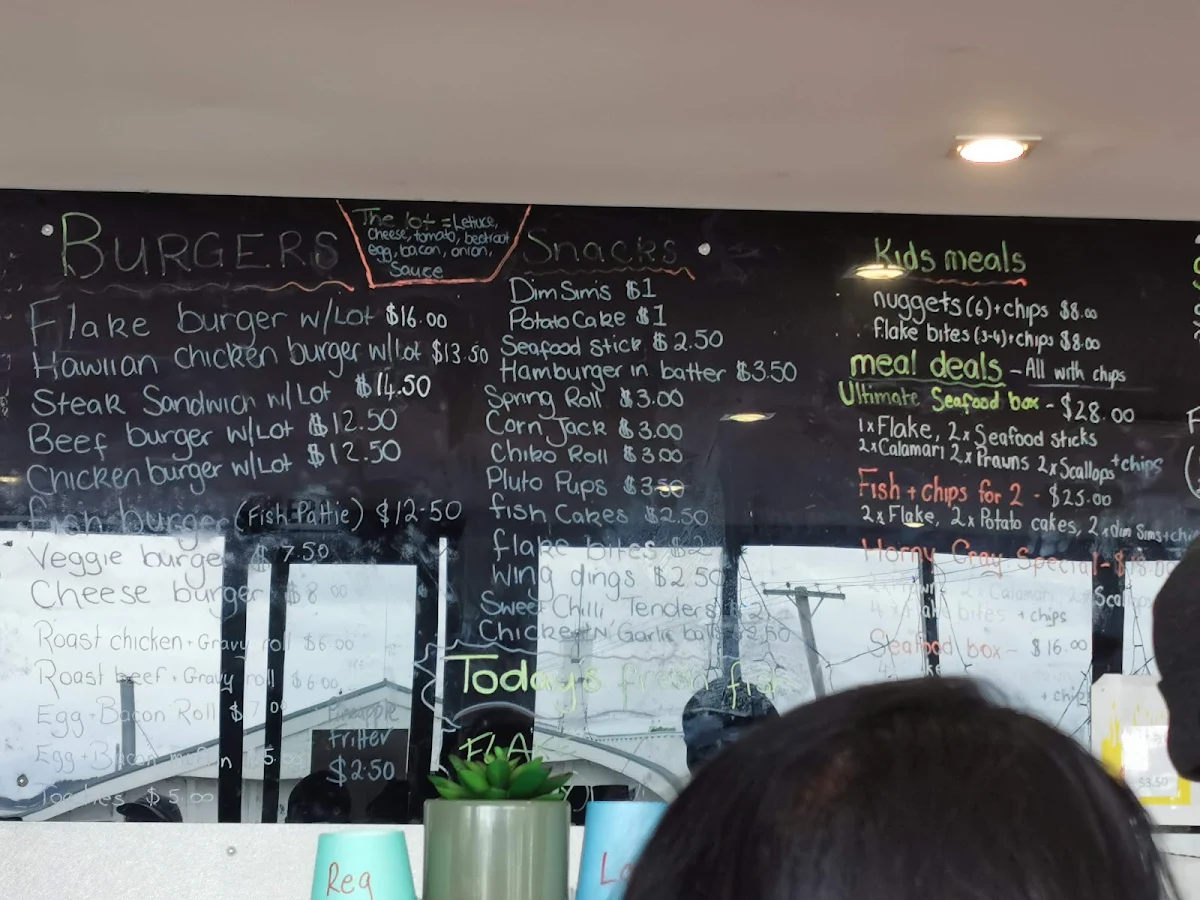 BURGERS
The lot = Lettuce,
cheese, tomato, beetroot
egg, bacon, onion,
Sauce
Flake burger w/Lot $16.00
Hawiian chicken burger w/Lot $13.50
Steak Sandwich w/Lot $14.50
Beef burger w/Lot $12.50
Chicken burger w/Lot $12.50
fish burger (Fish Pattie) $12.50
Veggie burger $7.50
Cheese burger $8.00
Roast chicken + Gravy roll $6.00
Roast beef + Gravy roll $6.00
Egg + Bacon Roll $7.00
Egg + Bacon
Toasties $5.00
Pineapple
fritter
$2.50
Snacks
Dim Sim's $1
Potato Cake $1
Seafood Stick $2.50
Hamburger in batter $3.50
Spring Roll $3.00
Corn Jack $3.00
Chiko Roll $3.00
Pluto Pups $3.50
fish Cakes $2.50
flake bites $2
wing dings $2.50
Sweet Chilli Tenders
Chicken Garlic balls $2.50
Today's fresh fish
FLAKE
Kids meals
nuggets (6) + chips $8.00
flake bites (3-4) + chips $8.00
meal deals - All with chips
Ultimate Seafood box - $28.00
1x Flake, 2x Seafood sticks
2x Calamari 2x Prawns 2x Scallops + chips
Fish + chips for 2 - $25.00
2x Flake, 2x Potato cakes, 2x Dim Sims + ch
Horny Cray Special - $18.00
2x Calamari
bites + chips
Seafood box - $16.00
+ chips
$3.50
Reg